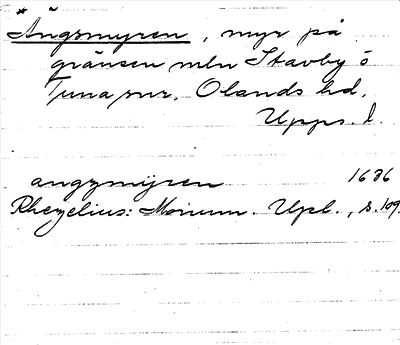 * Ängsmyren, myr på
gränsen mln Stavby o
Tuna snr, Olands hd,
Upps. l.
angzmÿren 1636
Rhezelius: Monum. Upl., s. 109.